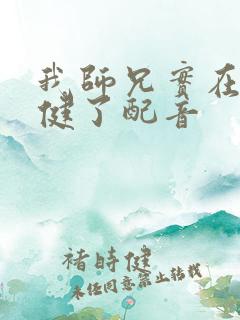 我師兄實在
健了配音
褚時健
未經同意禁止轉載